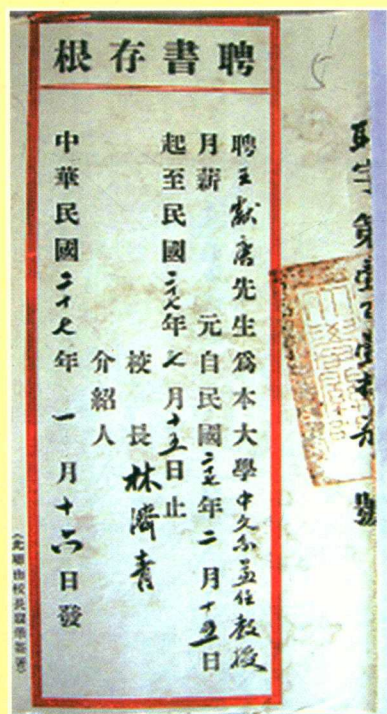 5
聘字第壹百壹拾號
聘書存根
聘王獻唐先生爲本大學中文系兼任教授
月薪 元自民國二七年二月十五日
起至民國二七年七月十五日止
校長林濟青
介紹人
中華民國二十七年一月十六日發
(此聯由校長簽署)